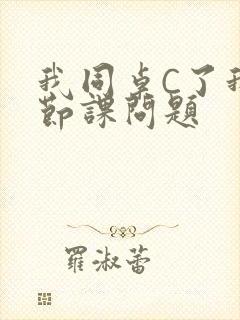 我同桌C了我
節課問題
羅淑蕾